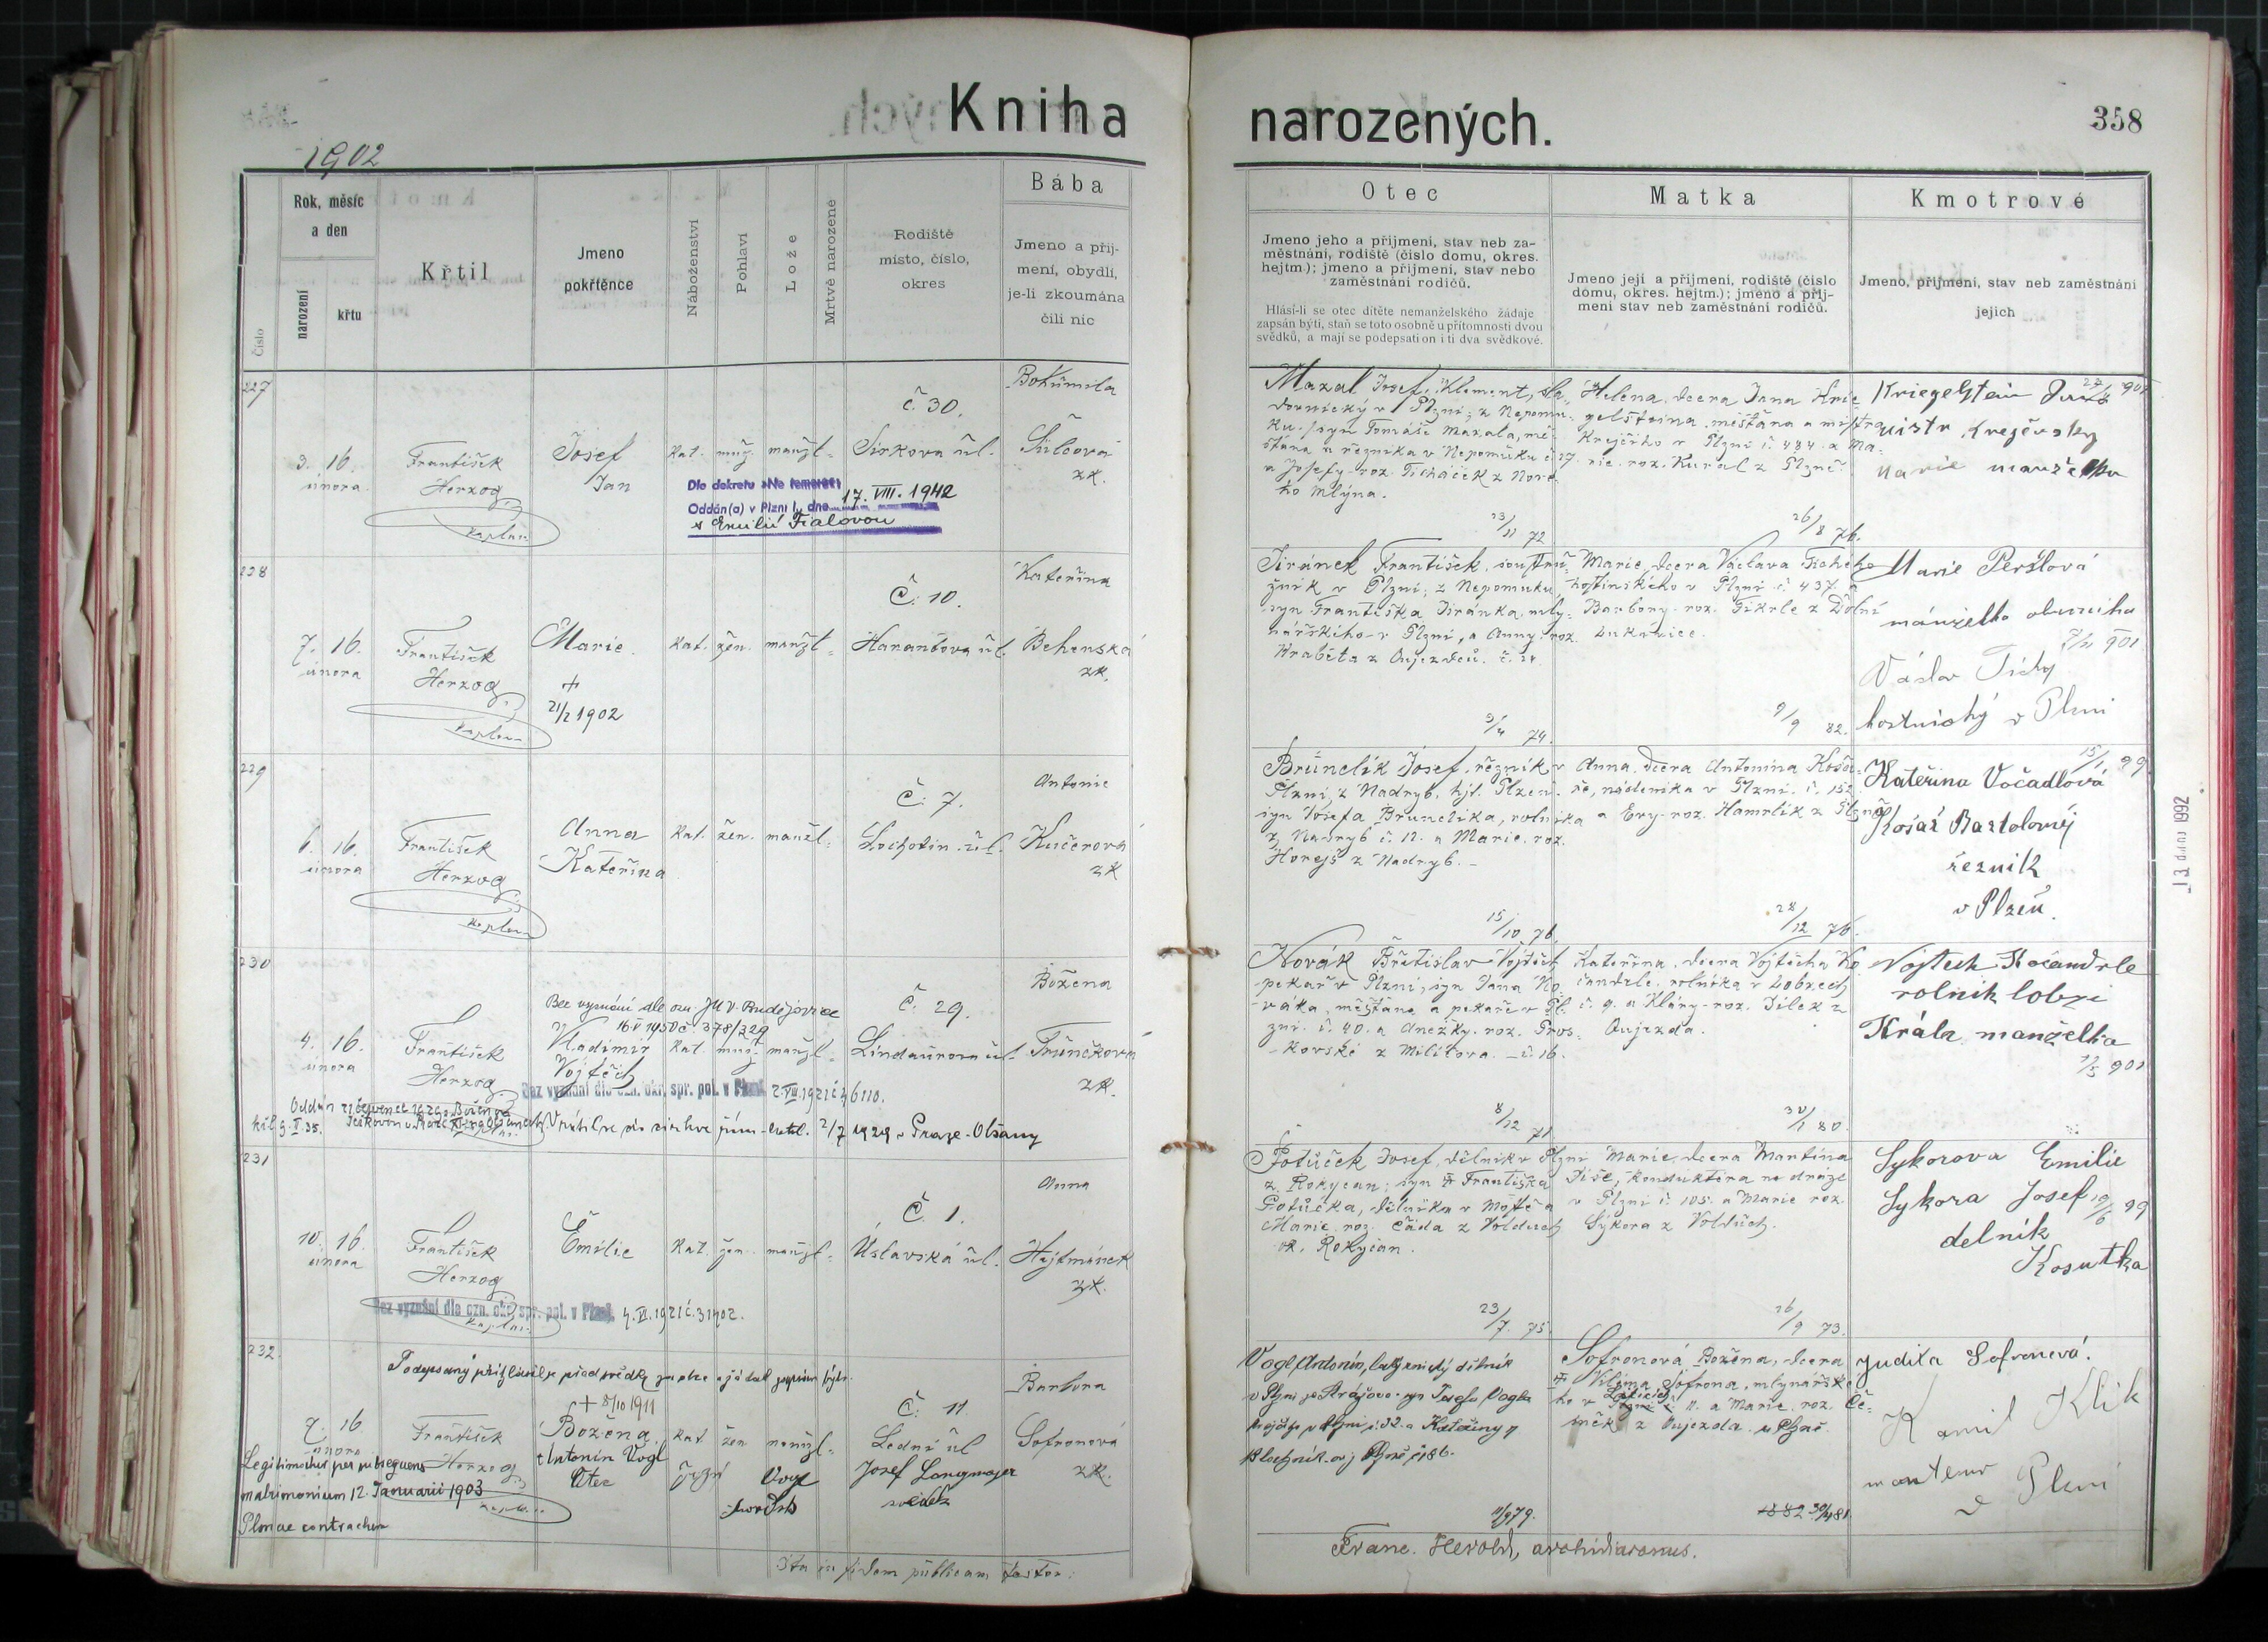 Kniha
narozených.
358
1902
Číslo
Rok, měsíc
a den
narození
křtu
Křtil
Jmeno
pokřtěnce
Náboženství
Pohlaví
Lože
Mrtvě narozené
Rodiště
místo, číslo,
okres
Bába
Jmeno a příj-
mení, obydlí,
je-li zkoumána
čili nic
Otec
Jmeno jeho a příjmení, stav neb za-
městnání, rodiště (číslo domu, okres.
hejtm.); jmeno a příjmení, stav nebo
zaměstnání rodičů.
Hlásí-li se otec dítěte nemanželského žádaje
zapsán býti, staň se toto osobně u přítomnosti dvou
svědků, a mají se podepsati on i ti dva svědkové.
Matka
Jmeno její a příjmení, rodiště (číslo
domu, okres. hejtm.); jmeno a příj-
mení stav neb zaměstnání rodičů.
Kmotrové
Jmeno, příjmení, stav neb zaměstnání
jejich
227
3. 16.
února
František
Herzog
kaplan
Josef
Jan
kat. muž. manžl.
č. 30.
Jirkova ul.
Bohumila
Šulcová
zk.
Dle dekretu »Ne temere«
Oddán(a) v Plzni I. dne 17. VIII. 1942
s Emilií Fialovou
Mazal Josef, Klement, sla-
dovnický v Plzni, z Nepomu-
ku, syn Tomáše Mazala, mě-
štána a řezníka v Nepomuku č. 27.
a Josefy roz. Ticháček z Nové-
ho Mlýna.
23/11 72
Helena, dcera Jana Krie-
gelšteina, měštána a mistra
Krejčího v Plzni č. 484. a Ma-
rie roz. Kural z Plzně.
26/8 76.
Kriegelstein Jan
mistr krejčovský
Marie manželka
228
7. 16.
února
František
Herzog
kaplan
Marie.
+
21/2 1902
kat. žen. manžl.
Č. 10.
Harantova ul.
Kateřina
Behenská
zk.
Jiránek František, soustru-
žník v Plzni, z Nepomuku,
syn Františka Jiránka, mly-
nářského v Plzni, a Anny roz.
Hraběta z Oujezdců. č. 24.
3/4 74.
Marie, dcera Václava Tichého
hostinského v Plzni č. 437. a
Barbory roz. Fikrle z Dolní
Lukavice.
9/9 82.
Marie Peršlová
manželka obuvníka
7/11 901
Václav Tichý
hostinský v Plzni
229
6. 16.
února
František
Herzog
kaplan
Anna
Kateřina
kat. žen. manžl.
Č. 7.
Lochotín. ul.
Antonie
Kučerová
zk
Brunclík Josef, řezník v
Plzni, z Nadryb, hjt. Plzeň.
syn Josefa Brunclíka, rolníka
z Nadryb č. 12. a Marie roz.
Horejš z Nadryb.
15/10 76.
Anna, dcera Antonína Koša-
ře, nádeníka v Plzni. č. 152
a Evy roz. Hamrlík z Plzně.
28/12 76.
15/1 99
Kateřina Vočadlová
Košař Bartoloměj
řezník
v Plzeň.
230
4. 16.
února
František
Herzog
Bez vyznání dle ozn. JNV. Budějovice
16.V 1950 č. 378/329
Vladimír
Vojtěch
kat. muž. manžl.
Č. 29.
Lindaurova ul.
Božena
Trunčková
zk.
Bez vyznání dle ozn. okr. spr. pol. v Plzni. 2.VIII.1921 č 46110.
Vrátil se do církve řím-katol. 2/7 1929 v Praze-Olšany
Novák Břetislav Vojtěch
pekař v Plzni, syn Jana No-
váka, měštána a pekaře v Pl-
zni. č. 40. a Anežky roz. Pros-
kovské z Militova. č. 16.
8/12 71.
Kateřina, dcera Vojtěcha Ko-
čandrle, rolníka v Lobzech
č. 9. a Kláry roz. Jílek z
Oujezda.
30/1 80.
Vojtech Kočandrle
rolník lobzi
Klára manželka
1/5 901
231
10. 16.
února
František
Herzog
kaplan
Emilie
kat. žen. manžl.
Č. 1.
Úslavská ul.
Anna
Hejtmánek
zk.
Bez vyznání dle ozn. okr. spr. pol. v Plzni. 4.VI.1921 č.31402.
Potůček Josef, dělník v Plzni
z Rokycan; syn + Františka
Potůčka, dělníka v Mostě a
Marie roz. Čada z Volduch
ok. Rokycan.
23/7. 75.
Marie, dcera Martina
Tiše, konduktéra na dráze
v Plzni č. 105. a Marie roz.
Sýkora z Volduch.
26/9 73.
Sykorova Emilie
Sykora Josef 10/6 99
delník
Kosutka
232
Podepsaný přihlásil se před svědky za otce a žádal zapsán býti.
+ 8/10 1911
2. 16
února
František
Herzog
Božena
kat. žen nemžl.
Č. 11.
Lední ul
Barbora
Sofronová
zk.
Legitimatus per subsequens
matrimonium 12. Januarii 1903
Plznae contractum
Antonín Vogl
Otec
Vogl
svědek
Josef Langmajer
svědek
v Plzni ze Strážova syn Josefa Vogla
11/9 79.
Sofronová Božena, dcera
+ Viléma Sofrona, mlynářské-
ho v č. 11. a Marie roz. Če-
z Oujezda u Plzně.
1882 30/4 81.
Judita Sofronová.
Kamil Klik
monteur
v Plzni
Ita in fidem publicam testor:
Franc. Herold, archidiaconus.